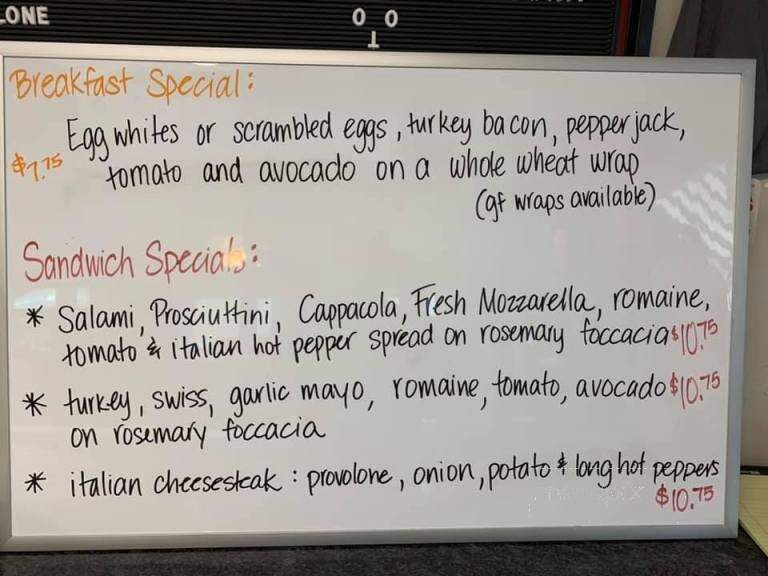 LONE
0 0
1
Breakfast Special:
Egg whites or scrambled eggs, turkey bacon, pepper jack,
$7.75 tomato and avocado on a whole wheat wrap
(gf wraps available)
Sandwich Specials:
* Salami, Prosciuttini, Cappacola, Fresh Mozzarella, romaine,
tomato & italian hot pepper spread on rosemary foccacia $10.75
* turkey, swiss, garlic mayo, romaine, tomato, avocado $10.75
on rosemary foccacia
* italian cheesesteak: provolone, onion, potato & long hot peppers
$10.75